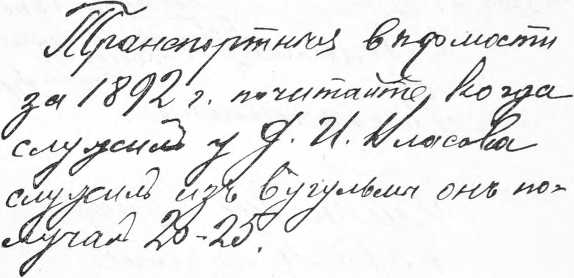 Транспортныя ведомости
за 1892 г. почитайте, когда
служилъ у Ф. И. Власова
служилъ изъ Бугульмы онъ по-
лучал 20-25.